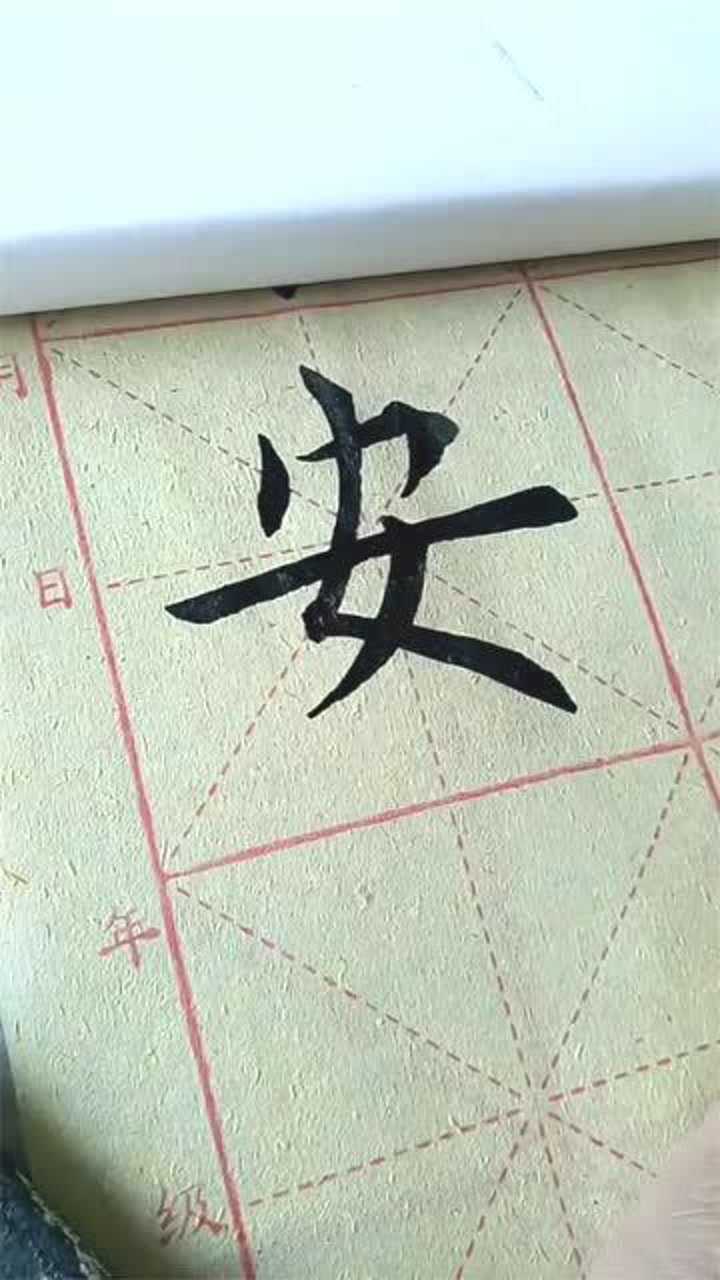 安
月
日
年
级